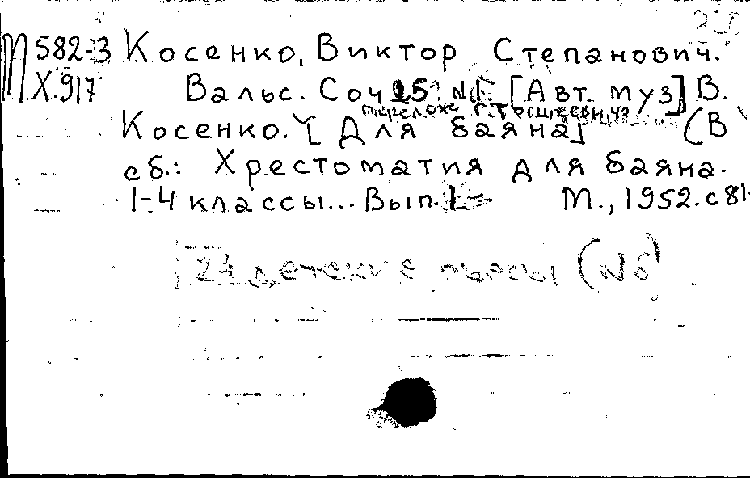 М 582-3 Косенко, Виктор Степанович.
X.917 Вальс. Соч 15 № [Авт. муз] В.
переложе Г. Тышкевича
Косенко. [Для баяна] (В
сб.: Хрестоматия для баяна.
1-4 классы... Вып. 1- М., 1952. с 81-
24 детские пьесы (№6)